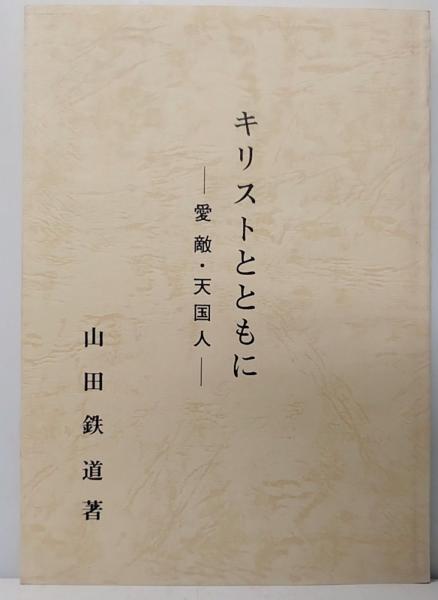 キリストとともに
―愛敵・天国人―
山田鉄道著